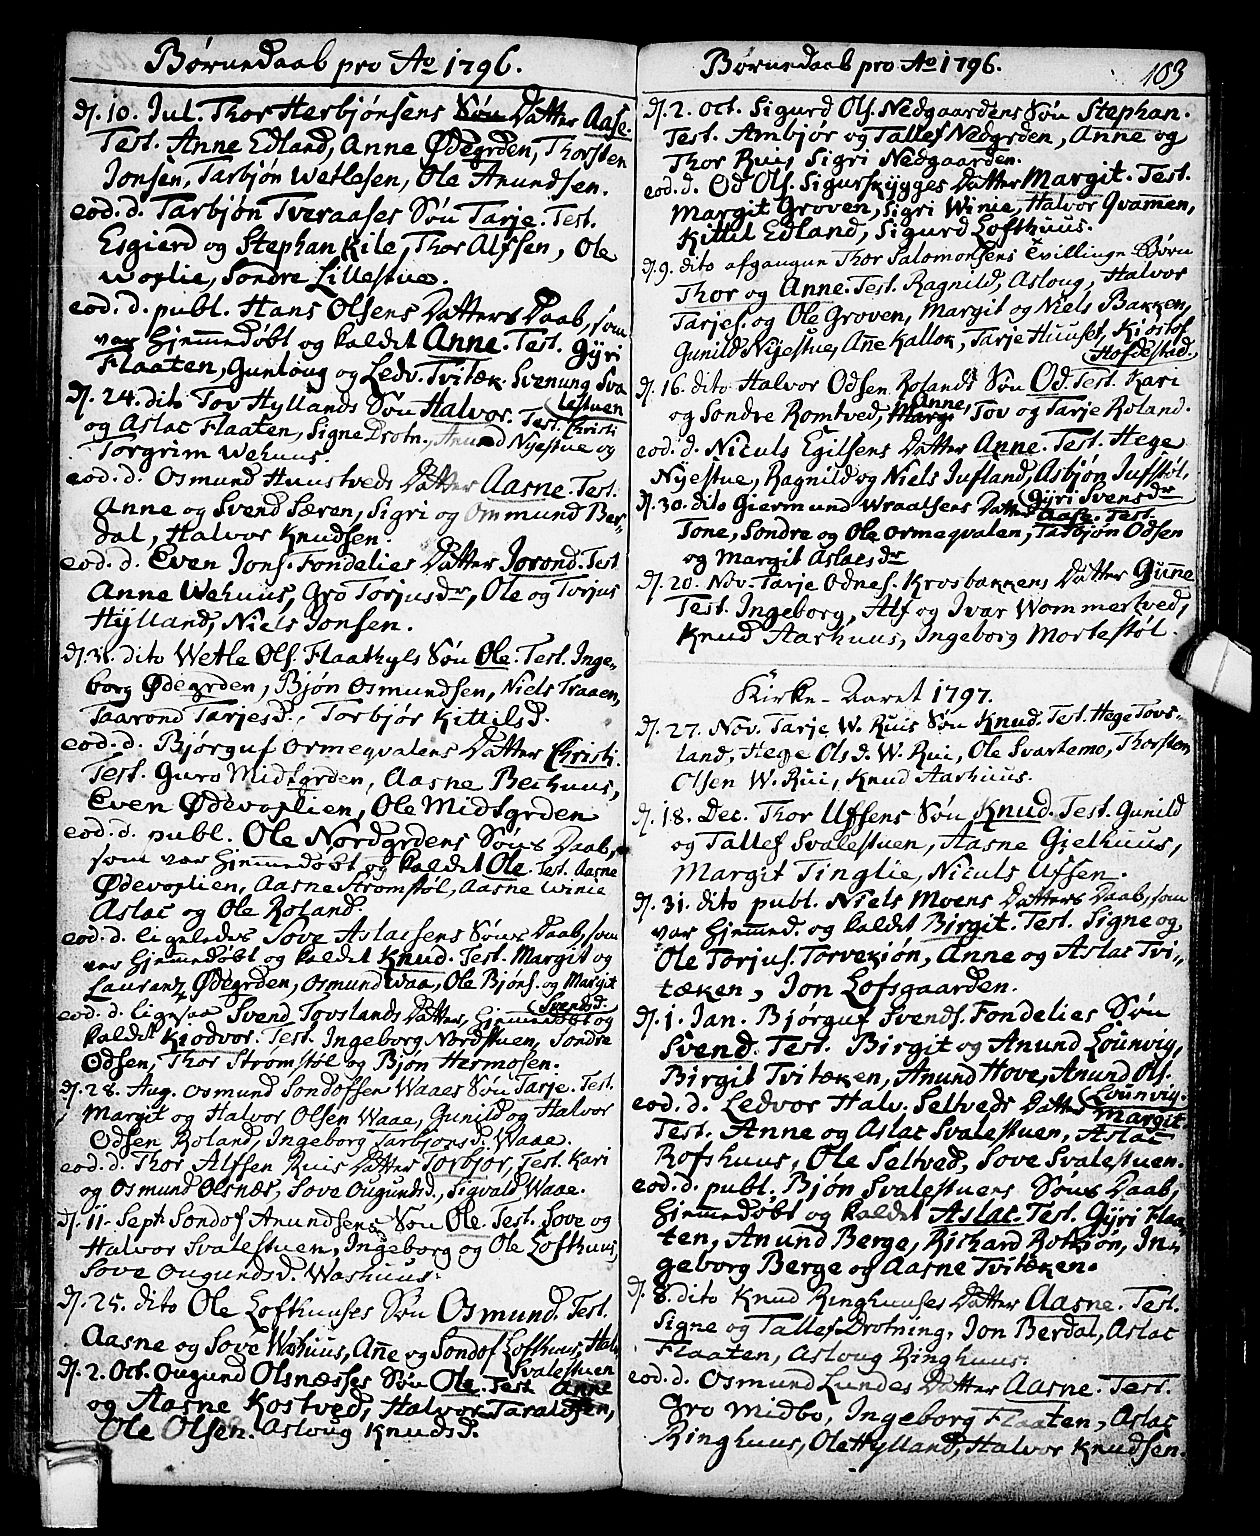 Børnedaab pro Ao 1796.
dj. 10. Jul. Thor Herbjørnsens Søn Datter Aase.
Test. Anne Edland, Anne Ødegrden, Thorsten
Jonsen, Tarbjøn Wetlesen, Ole Anundsen.
eod. d. Tarbjøn Tveraases Søn Tarje. Test.
Esgierd og Stephan Kile, Thor Alfsen, Ole
Woplie, Sondre Lillestue.
eod. d. publ. Hans Olsens Datters Daab, som
var hjemmedøbt og kaldet Anne. Test. Gÿri
Flaaten, Gunloug og Ledv. Tvitæk. Svenung Sva
lestuen
dj. 24. dito Tov Hyllands Søn Halvor. Test. Christi
og Aslac Flaaten, Signe Drotn., Anund Nyestue og
Torgrim Wehuus.
eod. d. Osmund Huustveds Datter Aasne. Test.
Anne og Svend Særen, Sigri og Ommund Ber-
dal, Halvor Knudsen.
eod. d. Even Jons. Fondelies Datter Jorond. Test.
Anne Wehuus, Gro Torjusdr, Ole og Torjus
Hÿlland, Niels Jonsen.
dj. 31. dito Wetle Ols. Flaathyls Søn Ole. Test. Inge-
borg Ødegrden, Bjøn Osmundsen, Niels Traaen,
Taarond Tarjesd., Torbjør Kittilsd.
eod. d. Bjørguf Ormeqvalens Datter Christi.
Test. Guro Midtgrden, Aasne Bechuus,
Even Ødevoplien, Ole Midtgrden
eod. d. publ. Ole Nordgrdens Søns Daab,
som var hjemmedøbt og kaldet Ole. Test. Aasne
Ødevoplien, Aasne Strømstøl, Aasne Winie
Aslac og Ole Roland.
eod. d. ligeledes Sove Aslacsens Søns Daab, som
var hjemmedøbt og kaldet Knud. Test. Margit og
Laurantz Ødegrden, Osmund Waa, Ole Bjøns. og Margit
Svendsd.
eod. d. ligesaa Svend Tovslands Datter, hjemmedøbt og
kaldet Kiodvor. Test. Ingeborg Nordstuen, Sondre
Odsen, Thor Strømstøl og Bjøn Hermosen.
dj. 28. Aug. Osmund Sondofsen Waaes Søn Tarje. Test.
Margit og Halvor Olsen Waae, Gunild og Halvor
Odsen Roland, Ingeborg Tarbjønsd. Waae.
eod. d. Thor Alfsen Ruis Datter Torbjør, Test. Kari
og Osmund Olsnæs, Sove Ougundsd., Sigvald Waae.
dj. 11. Septr. Sondof Anundsens Søn Ole. Test. Sove og
Halvor Svalestuen, Ingeborg og Ole Lofthuus,
Sove Ougundsd. Washuus.
dj. 25. dito Ole Lofthuuses Søn Osmund. Test.
Aasne og Sove Washuus, Anne og Sondof Lofthuus, Halv.
Svalestuen
dj. 2. Oct. Ougund Olsnæsses Søn Ole. Test. Anne
og Aasne Kostved, Halvor Taraldsen,
Ole Olsen. Asloug Knudsd.
Børnedaab pro Ao 1796. 103
dj. 2. Oct. Sigurd Ols. Nedgaardens Søn Stephan.
Test. Ambjør og Tallef Nedgrden, Anne og
Thor Rui, Sigri Nedgaarden.
eod. d. Od Ols. Sigurskÿgges Datter Margit. Test.
Margit Groven, Sigri Winie, Halvor Qvamen,
Kittil Edland, Sigurd Lofthuus.
dj. 9. dito afgangne Thor Salomonsens tvillinge Børn
Thor og Anne. Test. Ragnild, Asloug, Halvor
Tarjes. og Ole Groven, Margit og Niels Bakken,
Gunild Nyestue, Ane Kallok, Tarje Huuset, Kiøstof
Hofdestad.
dj. 16. dito Halvor Odsen Rolands Søn Od. Test. Kari
og Sondre Romtved, Margi Anne, Tov og Tarje Roland.
eod. d. Niculs Egilsens Datter Anne. Test. Hege
Nyestue, Ragnild og Niels Jufland, Asbjøn Jufstøl,
Gÿri Svensdr
dj. 30. dito Giermund Wraalsens Datter Aase. Test.
Tone, Sondre og Ole Ormeqvalen, Tarbjøn Odsen
og Margit Aslacsdr
dj. 20. Nov. Tarje Odnes. Krosbakkens Datter Gunne
Test. Ingeborg, Alf og Ivar Wommertved,
Knud Aarhuus, Ingeborg Mortestøl.
Kirke-Aaret 1797.
dj. 27. Nov. Tarje W. Ruis Søn Knud. Test. Hege Tovs-
land, Hege Olsd. W. Rui, Ole Svartemo, Thorsten
Olsen W. Rui, Knud Aarhuus.
dj. 18. Dec. Thor Ufsens Søn Knud. Test. Gunild
og Tallef Svalestuen, Aasne Gjelhuus,
Margit Tinglie, Niculs Ufsen.
dj. 31. dito publ. Niels Moens Datters Daab, som
var hjemmed. og kaldet Birgit. Test. Signe og
Ole Torjus. Torvekiøn, Anne og Aslac Tvi-
tæken, Jon Lofsgaarden.
dj. 1. Jan. Bjørguf Svends. Fondelies Søn
Svend. Test. Birgit og Anund Lounvig,
Birgit Tvitæken, Anund Hove, Anund Ols.
Lounvig.
eod. d. Ledvor Halv. Seltveds Datter Margit
Test. Anne og Aslac Svalestuen, Aslac
Rofshuus, Ole Seltved, Sove Svalestuen.
eod. d. publ. Bjøn Svalestuens Søns Daab,
hjemmedøbt og kaldet Aslac. Test. Gÿri Flaa-
ten, Anund Berge, Richard Rotkiøn, In-
geborg Berge og Aasne Tvitæken.
dj. 8. dito Knud Ringhuuses Datter Aasne. Test.
Signe og Tallef Drotning, Jon Berdal, Aslac
Flaaten, Asloug Ringhuus.
eod. d. Osmund Lundes Datter Aasne. Test.
Gro Midbo, Ingeborg Flaaten, Aslac
Ringhuus, Ole Hylland, Halvor Knudsen.